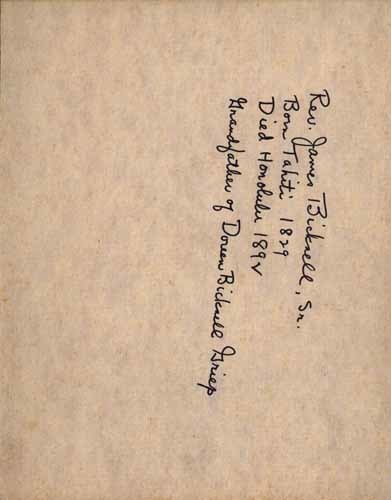 Rev. James Bicknell, Sr.
Born Tahiti 1829
Died Honolulu 1892
Grandfather of Doreen Bicknell Griep